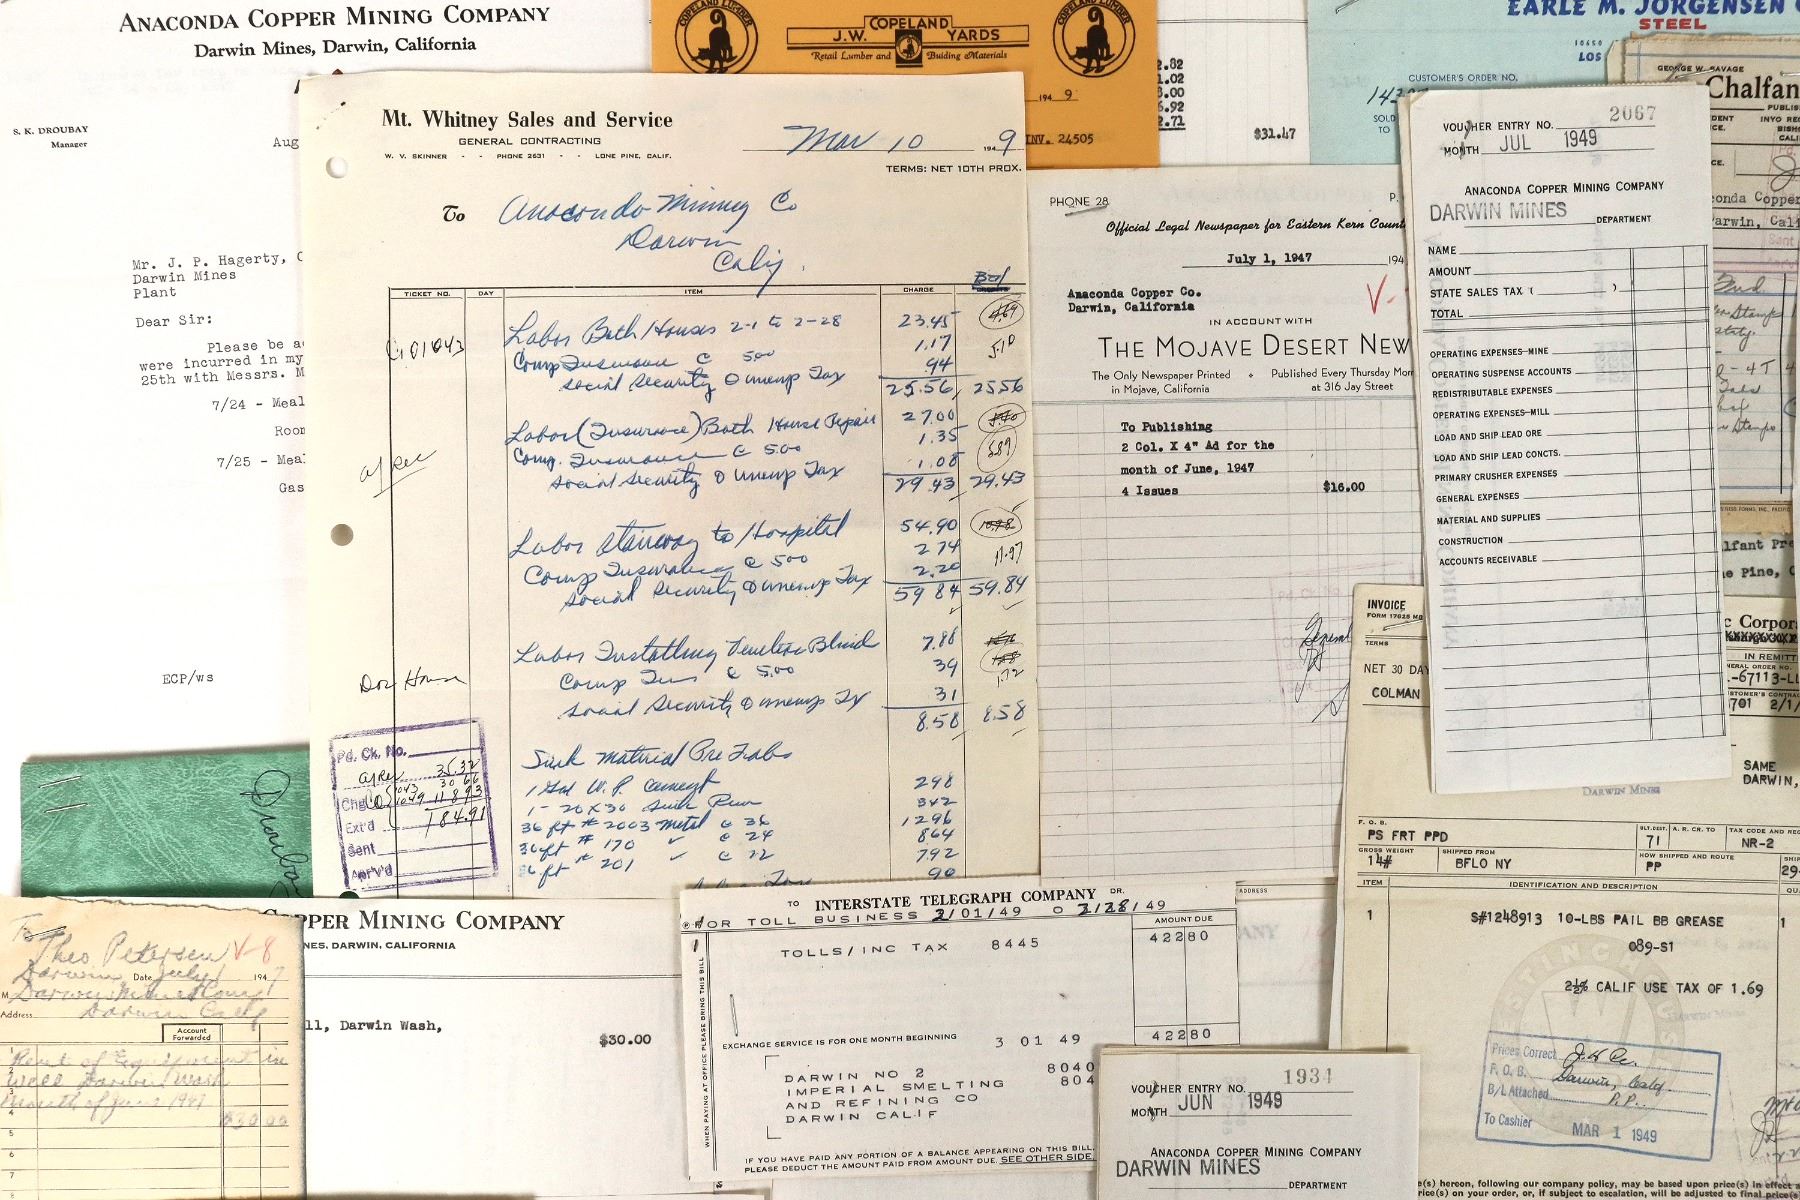 ANACONDA COPPER MINING COMPANY
Darwin Mines, Darwin, California
S. K. DROUBAY
Manager
Aug
Mr. J. P. Hagerty, C
Darwin Mines
Plant
Dear Sir:
Please be a
were incurred in my
25th with Messrs. M
7/24 - Meal
Room
7/25 - Meal
Gas
ECP/ws
COPELAND LUMBER
J.W. COPELAND YARDS
Retail Lumber and Building Materials
COPELAND LUMBER
194 9
INV. 24505
2.82
1.02
3.00
6.92
2.71
$31.47
EARLE M. JORGENSEN
STEEL
10650
LOS
CUSTOMER'S ORDER NO.
SOLD
TO
GEORGE W. SAVAGE
Chalfan
PUBLIS
INYO RE
BISH
CALI
Mt. Whitney Sales and Service
GENERAL CONTRACTING
W. V. SKINNER - - PHONE 2631 - - LONE PINE, CALIF.
Mar 10 1949
TERMS: NET 10TH PROX.
To Anaconda Mining Co
Darwin
Calif.
TICKET NO. DAY ITEM CHARGE Bal
Labor Bath Houses 2-1 to 2-28 23.45
Comp Insurance @ 500 1.17 5.10
Social Security & unemp Tax 94
25.56 25.56
Labor (Insurance) Bath House Repair 27.00
Comp. Insurance @ 5.00 1.35 5.89
Social Security & unemp Tax 1.08
29.43 29.43
Labor stairway to Hospital 54.90
Comp Insurance @ 500 2.74 11.97
Social Security & unemp Tax 2.20
59.84 59.84
Labor Installing Venetian Blind 7.88
Comp Ins @ 5.00 39 1.72
Social Security & unemp Tx 31
8.58 8.58
Sink material Pre Fabs
1 Gal W.P. Cement 298
1- 20x30 Sink Rim 342
36 ft # 2003 Metal @ 36 1296
36 ft # 170 @ 24 864
36 ft # 201 @ 22 792
90
Tax
Pd. Ck. No.
35.32
30.66
1043
1049 118.93
184.91
Chg
Ext'd
Sent
Apr'v'd
PHONE 28
Official Legal Newspaper for Eastern Kern Count
July 1, 1947 194
Anaconda Copper Co.
Darwin, California
IN ACCOUNT WITH
THE MOJAVE DESERT NEW
The Only Newspaper Printed
in Mojave, California
Published Every Thursday Mor
at 316 Jay Street
To Publishing
2 Col. X 4" Ad for the
month of June, 1947
4 Issues $16.00
VOUCHER ENTRY NO. 2067
MONTH JUL 1949
ANACONDA COPPER MINING COMPANY
DARWIN MINES DEPARTMENT
NAME
AMOUNT
STATE SALES TAX ( )
TOTAL
OPERATING EXPENSES-MINE
OPERATING SUSPENSE ACCOUNTS
REDISTRIBUTABLE EXPENSES
OPERATING EXPENSES-MILL
LOAD AND SHIP LEAD ORE
LOAD AND SHIP LEAD CONCTS.
PRIMARY CRUSHER EXPENSES
GENERAL EXPENSES
MATERIAL AND SUPPLIES
CONSTRUCTION
ACCOUNTS RECEIVABLE
onda Copper
arwin, Cali
lfant Pre
ne Pine, C
INVOICE
TERMS
NET 30 DAY
COLMAN
c Corpor
IN REMITT
-67113-LL
701 2/1/
SAME
DARWIN,
DARWIN MINES
F. O. B.
PS FRT PPD
71
A. R. CR. TO
TAX CODE AND REG
NR-2
GROSS WEIGHT
14#
SHIPPED FROM
BFLO NY
HOW SHIPPED AND ROUTE
PP
29-
ITEM IDENTIFICATION AND DESCRIPTION
1 S#1248913 10-LBS PAIL BB GREASE 1
089-S1
2½% CALIF USE TAX OF 1.69
Prices Correct
F. O. B. Darwin, Calif.
B/L Attached P.P.
To Cashier
MAR 1 1949
(s) hereon, following our company policy, may be based upon price(s) in effect
rice(s) on your order, or, if subject to escalation, will be adjusted to final price
OPPER MINING COMPANY
NES, DARWIN, CALIFORNIA
ll, Darwin Wash,
$30.00
To Theo Petersen V-8
Darwin, Date July 1 1947
M Darwin Mines
Address Darwin Calif
Account
Forwarded
Rent of Equipment in
Well Darwin Wash
Month of June 1947
$30.00
TO INTERSTATE TELEGRAPH COMPANY DR.
FOR TOLL BUSINESS 2/01/49 2/28/49
AMOUNT DUE
TOLLS/INC TAX 8445 42280
WHEN PAYING AT OFFICE PLEASE BRING THIS BILL
42280
EXCHANGE SERVICE IS FOR ONE MONTH BEGINNING 3 01 49
DARWIN NO 2 8040
IMPERIAL SMELTING 804
AND REFINING CO
DARWIN CALIF
IF YOU HAVE PAID ANY PORTION OF A BALANCE APPEARING ON THIS BILL,
PLEASE DEDUCT THE AMOUNT PAID FROM AMOUNT DUE. SEE OTHER SIDE.
VOUCHER ENTRY NO. 1934
MONTH JUN 1949
ANACONDA COPPER MINING COMPANY
DARWIN MINES
DEPARTMENT